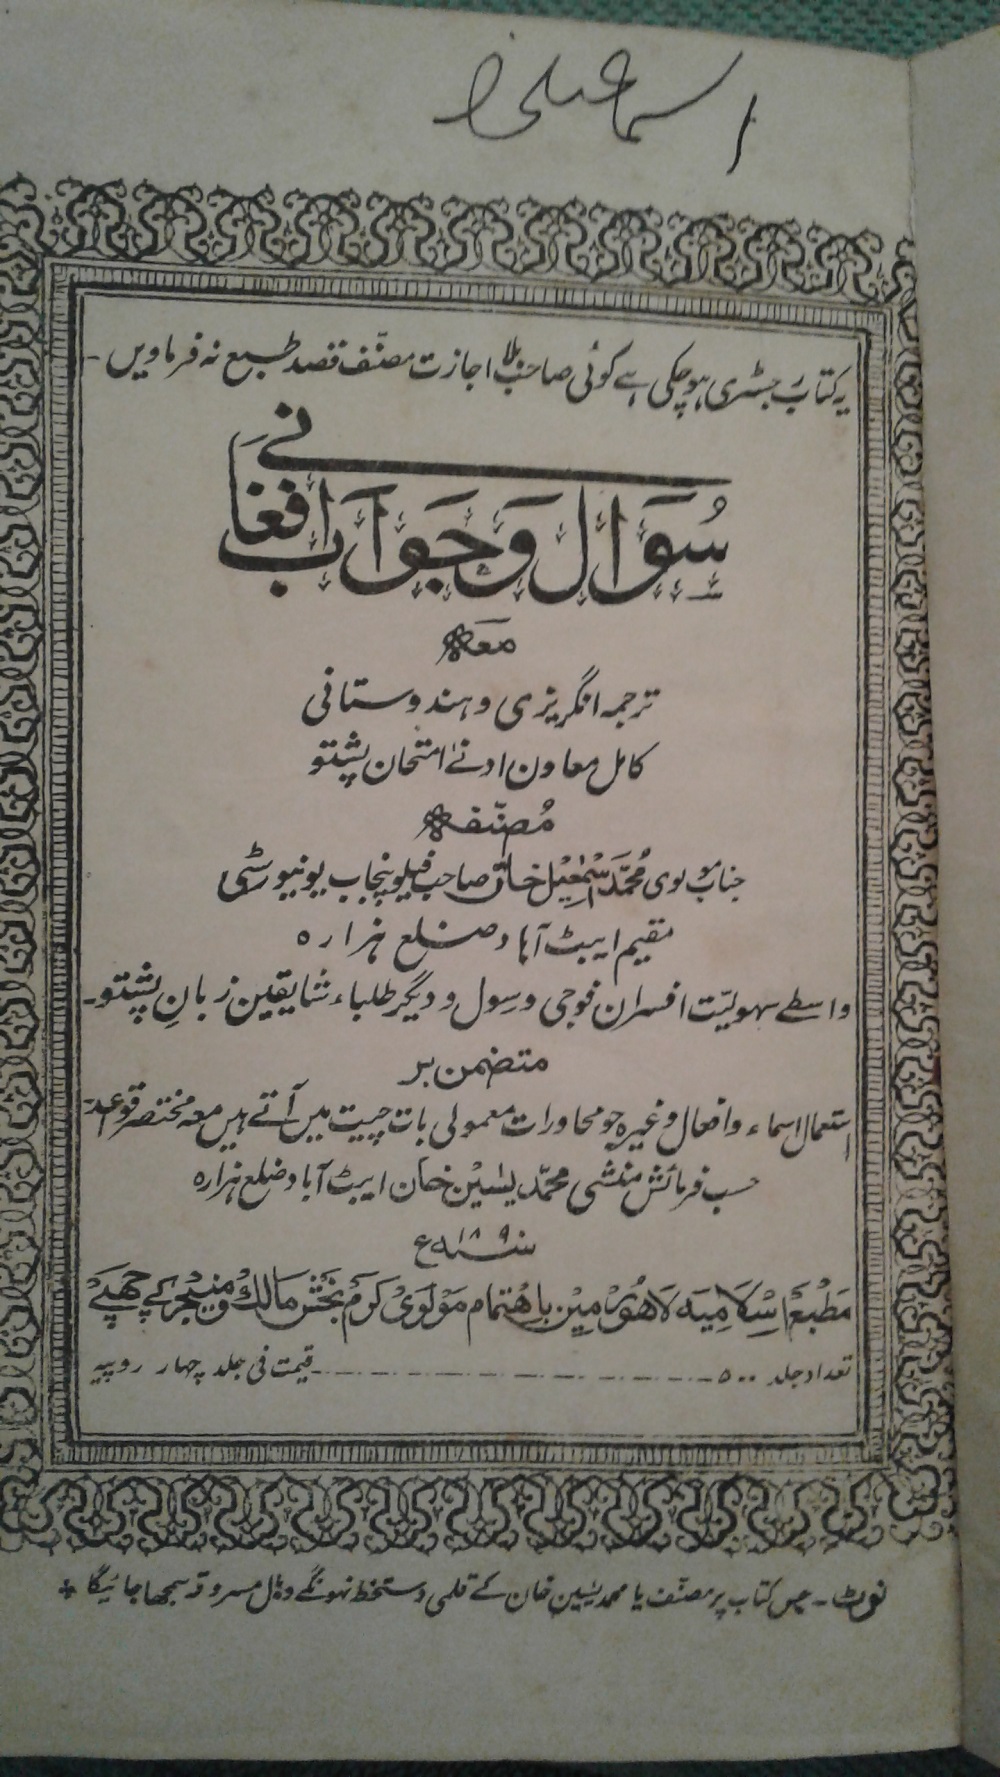 اسماعیل
یہ کتاب رجسٹری ہو چکی ہے کوئی صاحب بلا اجازت مصنّف قصد طبع نہ فرماویں -
سُوَال وَ جَوَاب افغانی
معہ
ترجمہ انگریزی و ہندوستانی
کامل معاون ادنےٰ امتحان پشتو
مُصنّفہ
جناب مولوی مُحمَّد اسْمٰعِیْل خان صاحب فیلو پنجاب یونیورسٹی
مقیم ایبٹ آباد ضلع ہزارہ
واسطے سہولیّت افسران فوجی و سِول و دیگر طلباء شایقین زبانِ پشتو -
متضمن بر
استعمال اسماء و افعال وغیرہ جو محاورات معمولی بات چیت میں آتے ہیں معہ مختصر قواعد
حسب فرمائش منشی محمّد یٰسین خان ایبٹ آباد ضلع ہزارہ
سنہ ۱۸۹۰ع
مَطْبَع اِسْلَامِیَہ لَاہُوْر مِیْں بَاہْتِمَام مَوْلَوِیْ کَرَم بَخْش مَالِک و مَنِیْجَر کے چھپی
تعداد جلد ۵۰۰ ــــــ قیمت فی جلد چہار روپیہ
نوٹ - جس کتاب پر مصنّف یا محمد یٰسین خان کے قلمی دستخط نہونگے وہ مال مسروقہ سمجھا جائیگا +